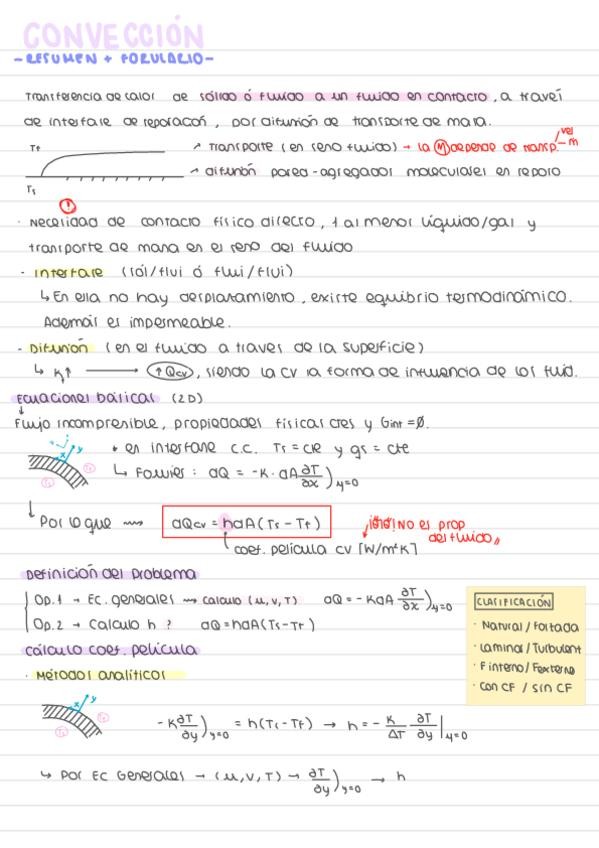 CONVECCIÓN
-RESUMEN + FORMULARIO-
Transferencia de calor de sólido ó fluido a un fluido en contacto, a través
de interfase de separación, por difusión de transporte de masa.
Tf
Ts
↗ transporte (en seno fluido) → la M depende de transp.
vel
m
→ difusión
agregados moleculares en reposo
!
· Necesidad de contacto físico directo, 1 al menor líquido/gas y
transporte de masa en el seno del fluido
· Interfase (sól/flui ó flui/flui)
↳ En ella no hay desplazamiento, existe equilibrio termodinámico.
Además es impermeable.
- Difusión (en el fluido a través de la superficie)
↳ K↑ → ↑Qcv, siendo la cv la forma de influencia de los fluid.
Ecuaciones básicas (2D)
Flujo incompresible, propiedades físicas ctes y Gint = Ø.
x y
* en interfase c.c. Ts = cte y qs = cte
↳ Fourier: dQ = -K·dA ∂T/∂x )y=0
Por lo que ⟿ dQcv = h dA (Ts - Tf)
¡ojo! No es prop del fluido
coef. película cv [W/m²K]
Definición del problema
Op.1 → Ec. generales ⟿ calculo (u, v, T) dQ = -K dA ∂T/∂x )y=0
Op.2 → Calculo h ? dQ = h dA (Ts - Tf)
CLASIFICACIÓN
· Natural / Forzada
· Laminar / Turbulent
· F interno / F externo
· Con CF / sin CF
Cálculo coef. película
· Métodos analíticos
x y
-K ∂T/∂y )y=0 = h (Ts - Tf) → h = - K/ΔT ∂T/∂y |y=0
↳ Por EC Generales → (u, v, T) → ∂T/∂y )y=0 → h